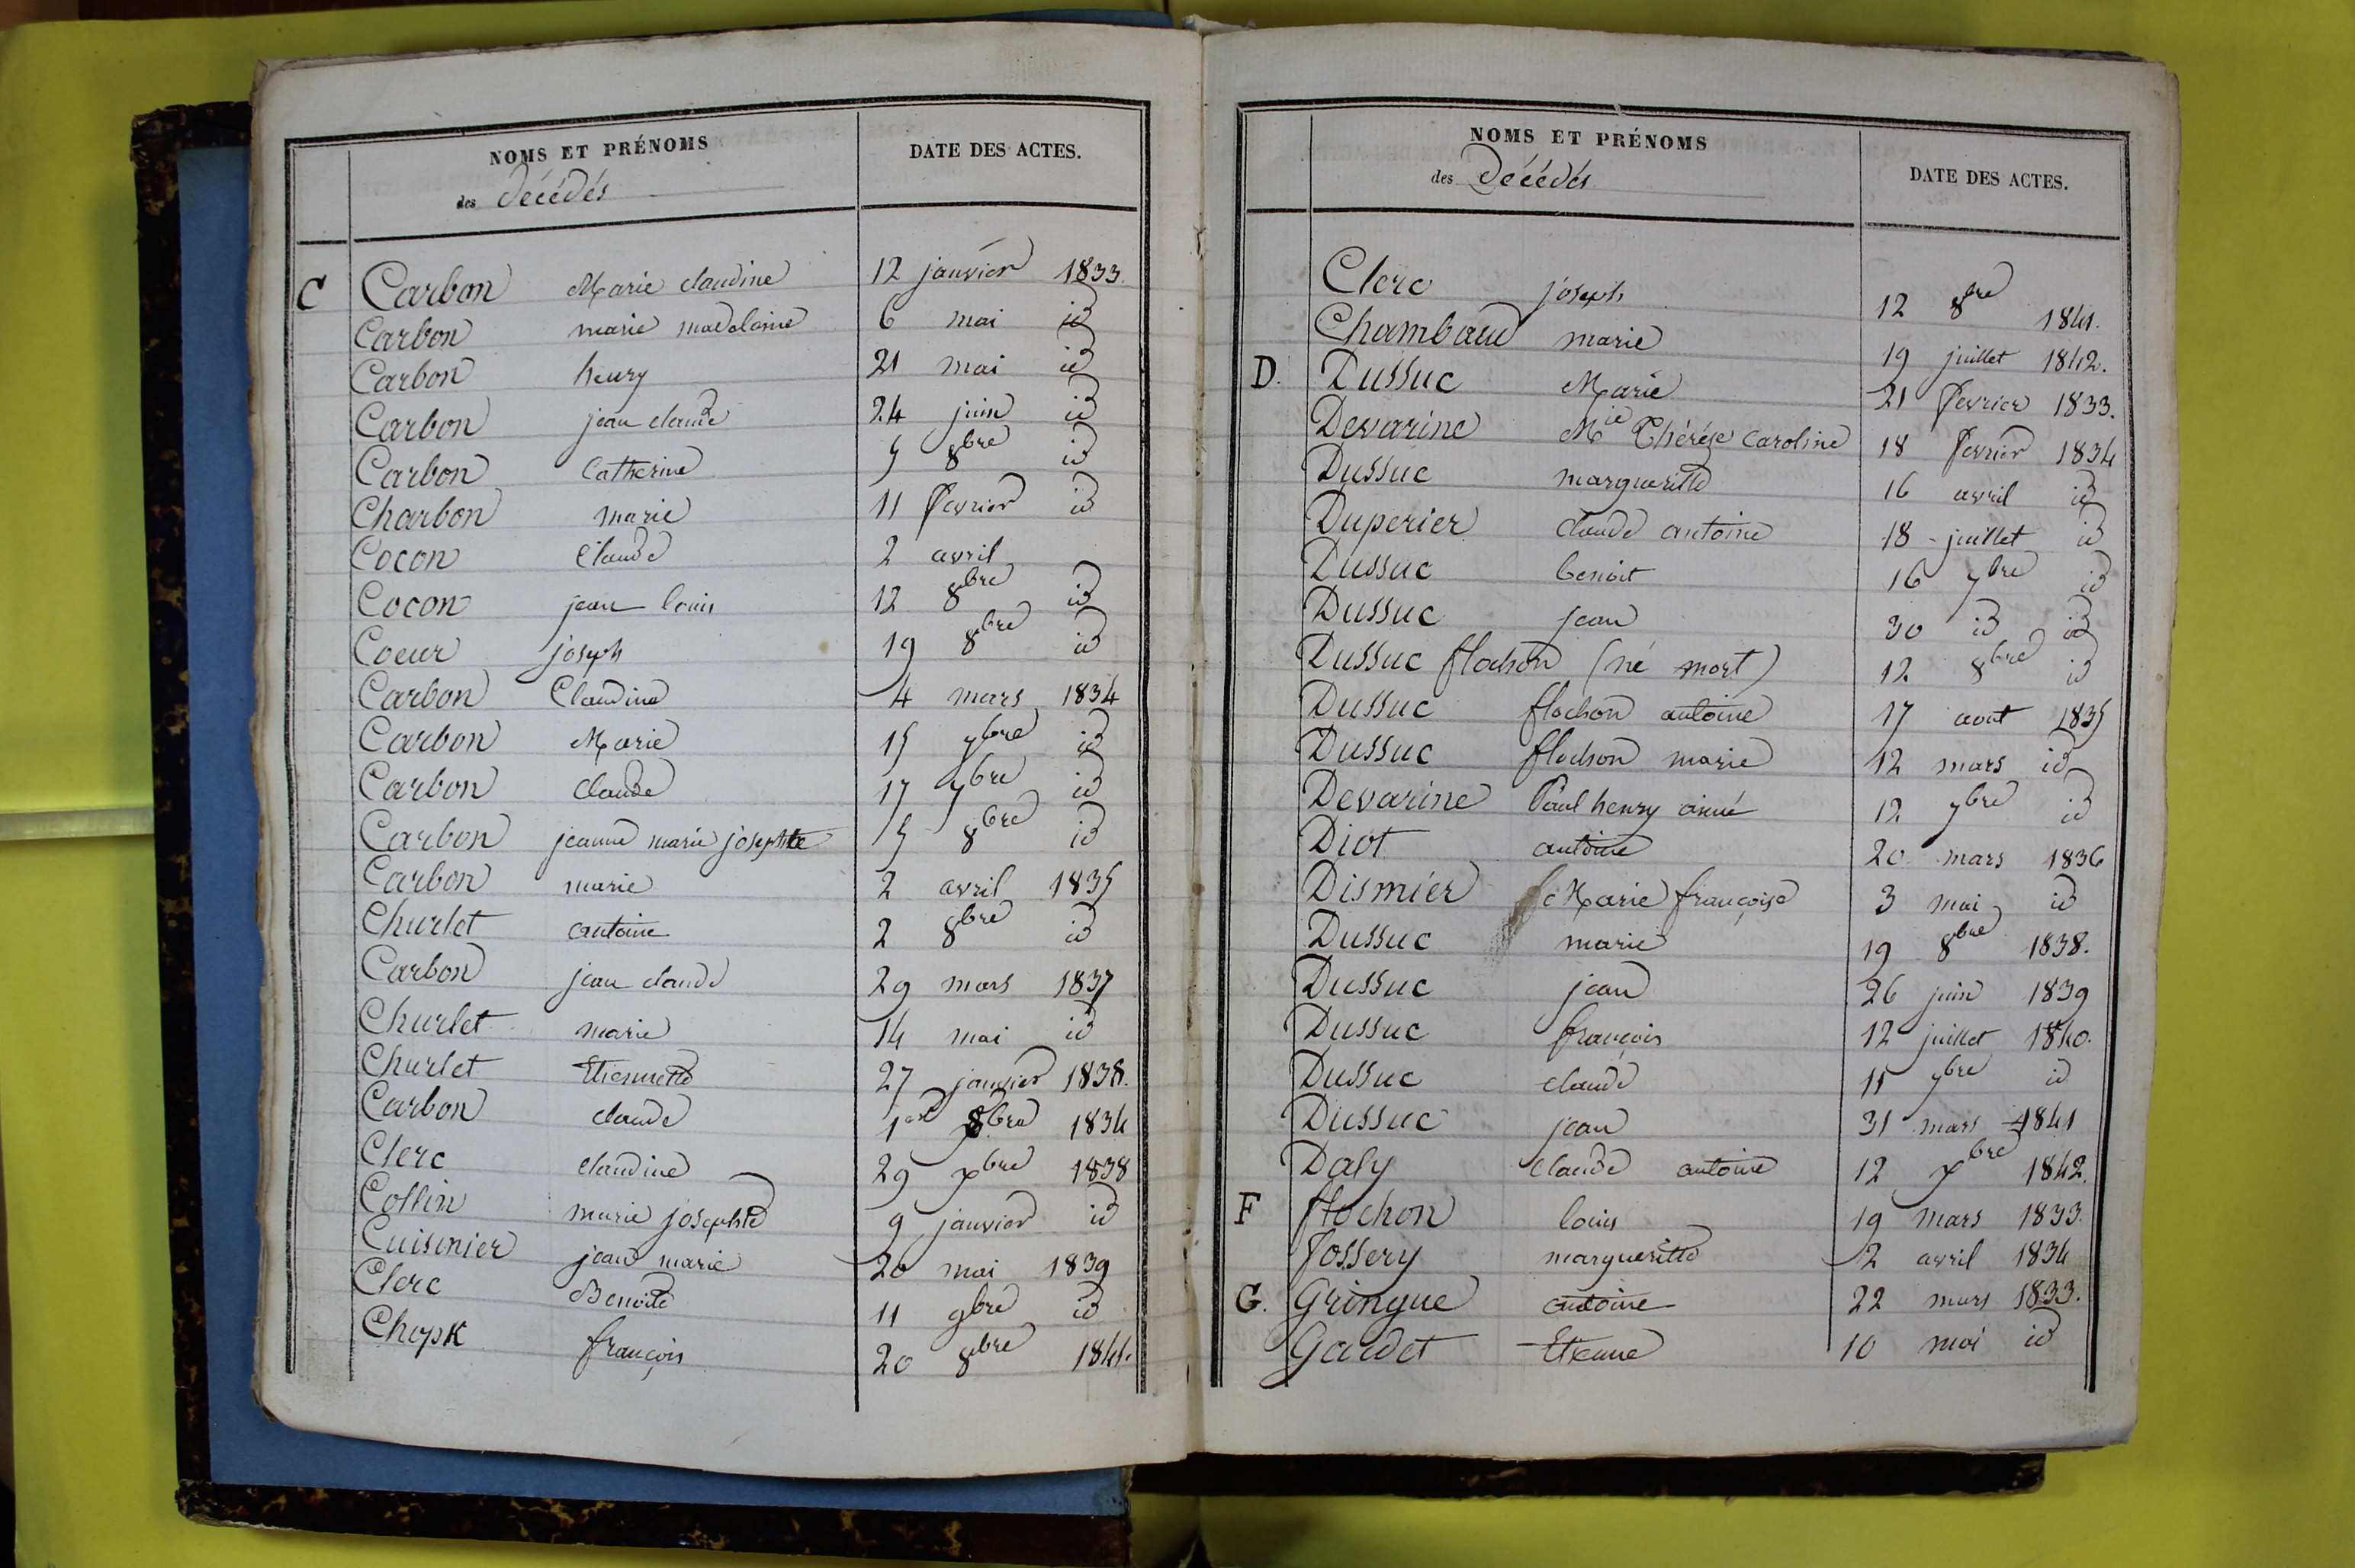 NOMS ET PRÉNOMS
des décédés
DATE DES ACTES.
C Carbon Marie claudine 12 janvier 1833.
Carbon marie madelaine 6 mai id
Carbon henry 21 mai id
Carbon jean claude 24 juin id
Carbon Catherine 5 8bre id
Charbon marie 11 fevrier id
Cocon Claude 2 avril
Cocon jean louis 12 8bre id
Coeur joseph 19 8bre id
Carbon Claudine 4 mars 1834
Carbon Marie 15 7bre id
Carbon claude 17 7bre id
Carbon jeanne marie josephte 15 8bre id
Carbon marie 2 avril 1835
Churlet antoine 2 8bre id
Carbon jean claude 29 mars 1837
Churlet marie 14 mai id
Churlet Etiennette 27 janvier 1838.
Carbon claude 1er 8bre 1834
Clerc claudine 29 xbre 1838
Collin marie josephte 9 janvier id
Cuisinier jean marie 20 mai 1839
Clerc Benoite 11 9bre id
françois 20 8bre 1841.
NOMS ET PRÉNOMS
des Décédés
DATE DES ACTES.
Clerc joseph 12 8bre 1841.
Chambaud marie 19 juillet 1842.
D. Dussuc Marie 21 fevrier 1833.
Devarine Mie Thérèze Caroline 18 fevrier 1834
Dussuc margueritte 16 avril id
Duperier claude antoine 18 juillet id
Dussuc benoit 16 7bre id
Dussuc jean 30 id id
Dussuc flochon (né mort) 12 8bre id
Dussuc flochon antoine 17 aout 1835
Dussuc flochon marie 12 mars id
Devarine Paul henry aimé 12 7bre id
Diot antoine 20 mars 1836
Dismier Marie françoise 3 mai id
Dussuc marie 19 8bre 1838.
Dussuc jean 26 juin 1839
Dussuc françois 12 juillet 1840.
Dussuc claude 11 7bre id
Dussuc jean 31 mars 1841
Daly claude antoine 12 xbre 1842.
F flochon louis 19 mars 1833.
fossery margueritte 2 avril 1834
G. Gringue antoine 22 mars 1833.
Gardet Etienne 10 mai id